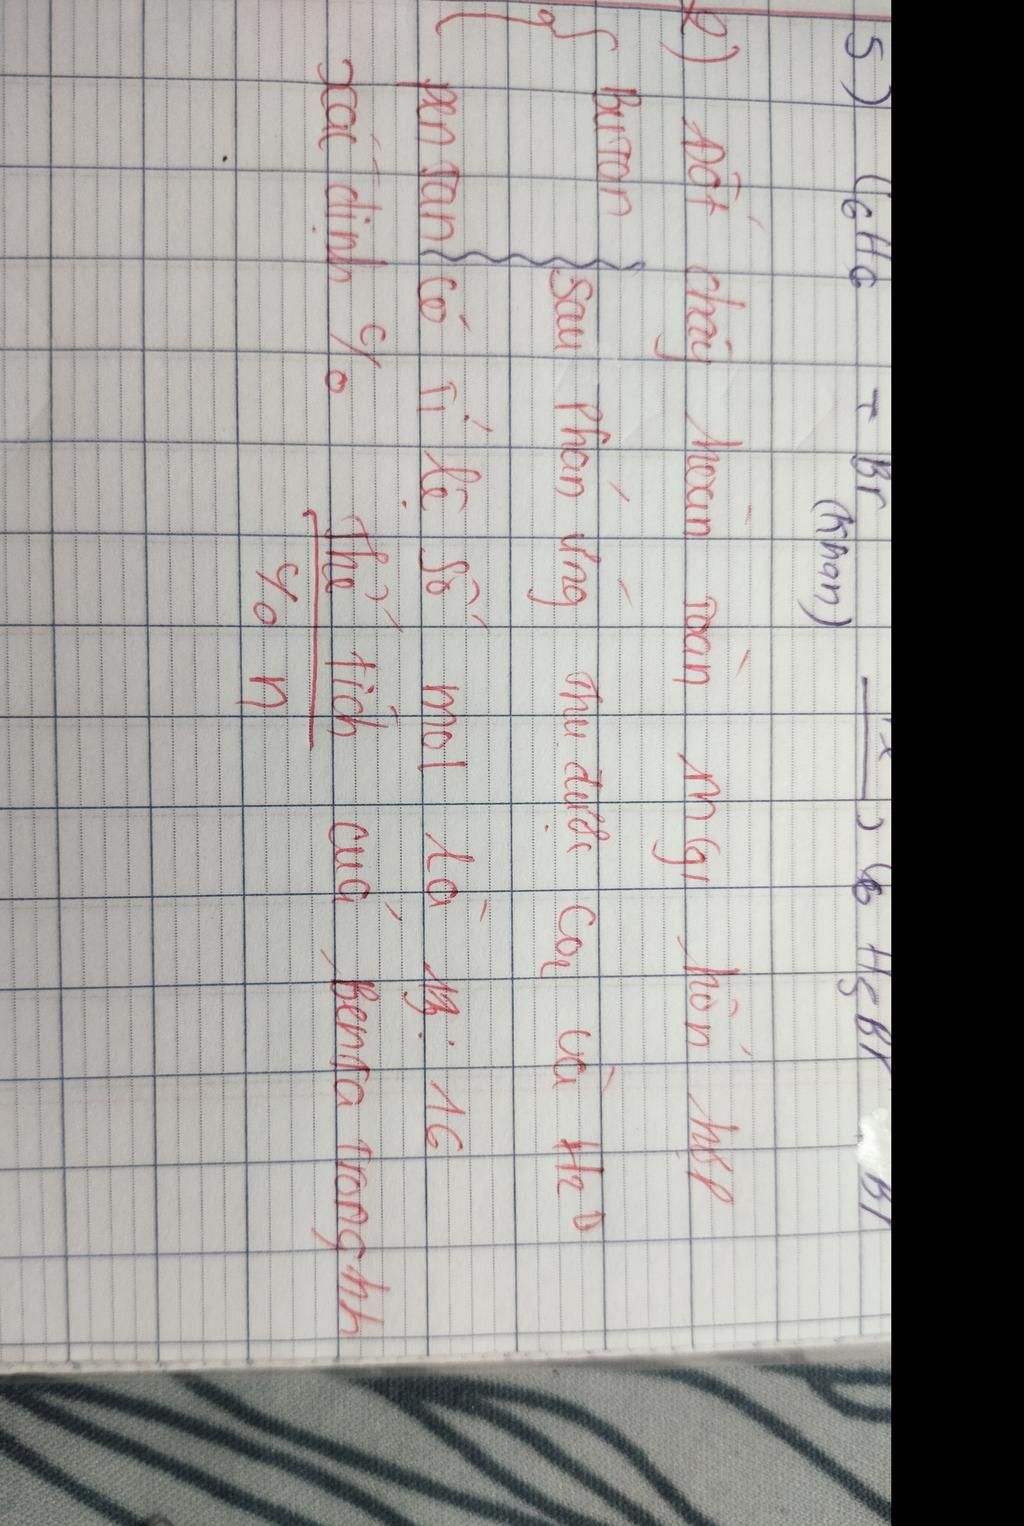 5) C6H6 + Br → C6H5Br
(khan)
2) Đốt cháy hoàn toàn m(g) hỗn hợp
Butan
Sau phản ứng thu được CO2 và H2O
pentan có tỉ lệ số mol là 13:16
xác định % Thể tích của penta trong hh
% n